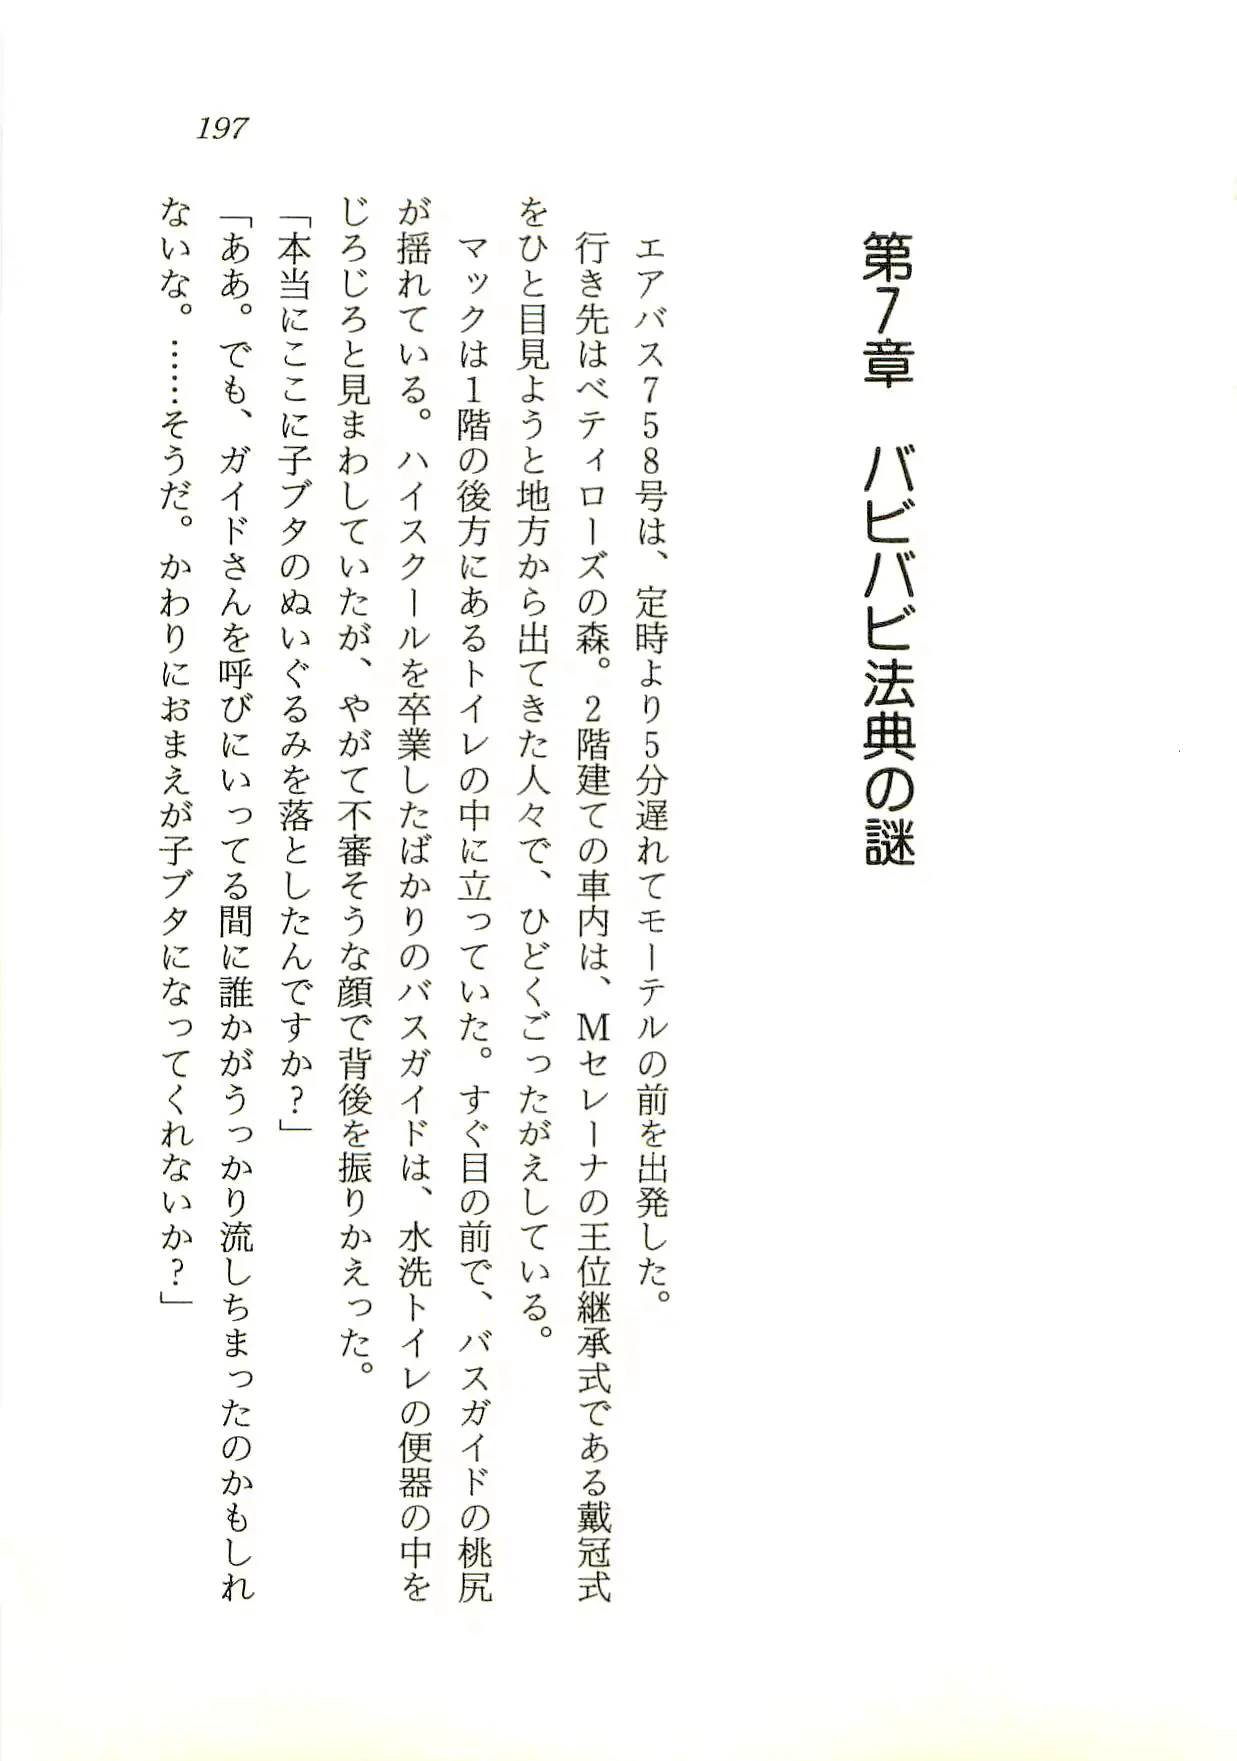 197
第7章　バビバビ法典の謎
　エアバス758号は、定時より5分遅れてモーテルの前を出発した。
　行き先はベティローズの森。2階建ての車内は、Mセレーナの王位継承式である戴冠式
をひと目見ようと地方から出てきた人々で、ひどくごったがえしている。
　マックは1階の後方にあるトイレの中に立っていた。すぐ目の前で、バスガイドの桃尻
が揺れている。ハイスクールを卒業したばかりのバスガイドは、水洗トイレの便器の中を
じろじろと見まわしていたが、やがて不審そうな顔で背後を振りかえった。
「本当にここに子ブタのぬいぐるみを落としたんですか？」
「ああ。でも、ガイドさんを呼びにいってる間に誰かがうっかり流しちまったのかもしれ
ないな。……そうだ。かわりにおまえが子ブタになってくれないか？」